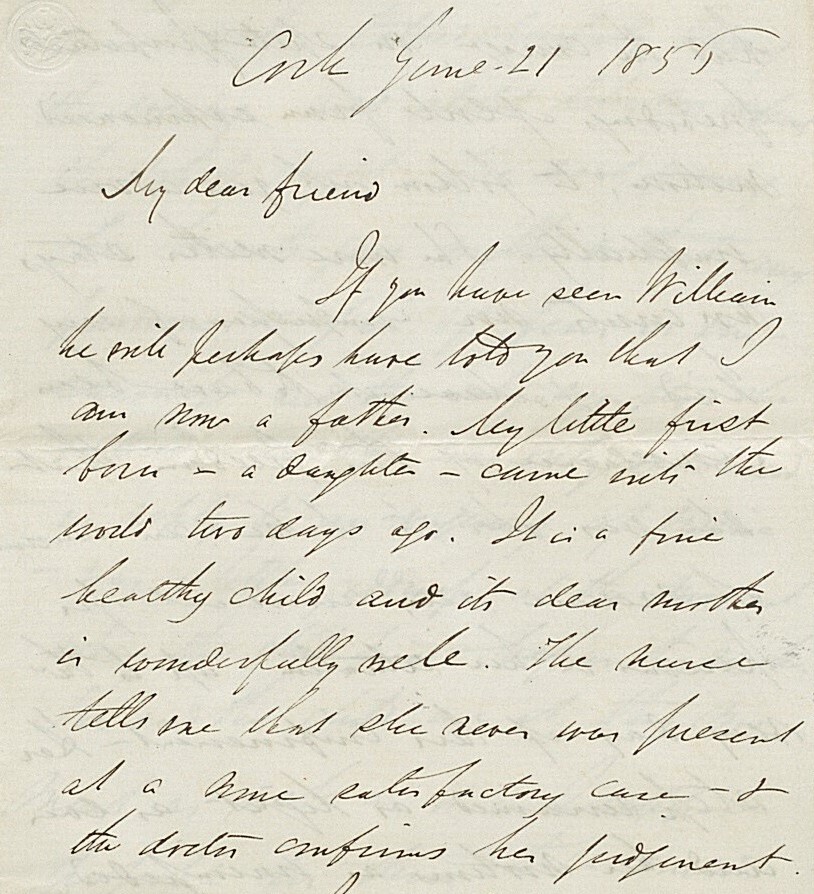 Cork June 21 1856
My dear friend
If you have seen William
he will perhaps have told you that I
am now a father. My little first
born – a daughter – came into the
world two days ago. It is a fine
healthy child and its dear mother
is wonderfully well. The nurse
tells me that she never was present
at a more satisfactory case – &
the doctor confirms her judgment.